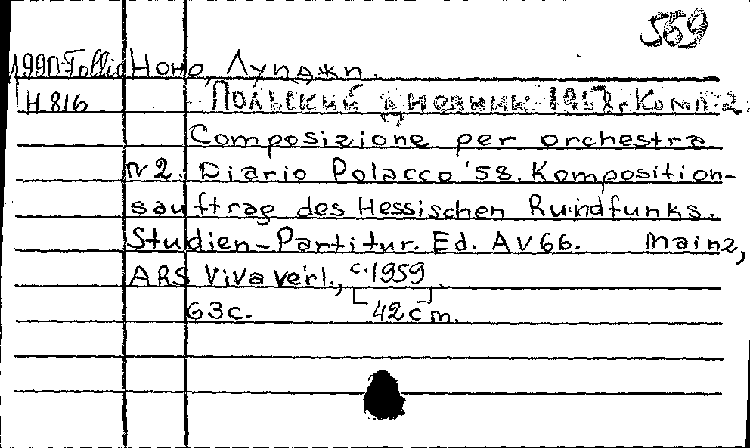 569
Ноно, Луиджи.
Н 816 Польский дневник 1958г. Комп. 2.
Composizione per orchestra
N 2. Diario Polacco '58. Komposition-
sauftrag des Hessischen Rundfunks.
Studien-Partitur. Ed. AV 66. Mainz,
ARS Viva verl., c. 1959
63 с. 42 cm.